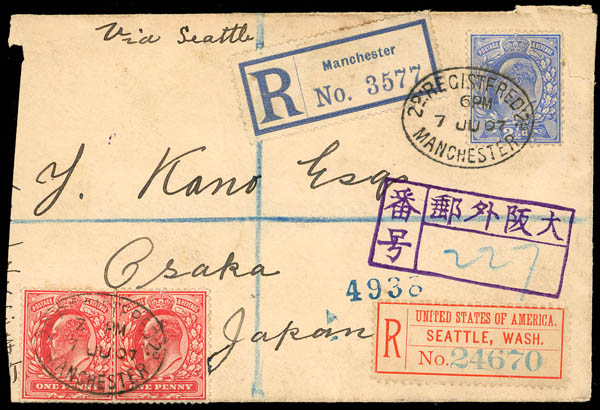 Via Seattle
R
Manchester
No. 3577
REGISTERED
6PM
7 JU 07
MANCHESTER
Y. Kano Esqr
Osaka
Japan
大阪外郵
番号
227
4938
R
UNITED STATES OF AMERICA.
SEATTLE, WASH.
No. 24670
PM
JU 07
MANCHESTER
ONE PENNY
ONE PENNY